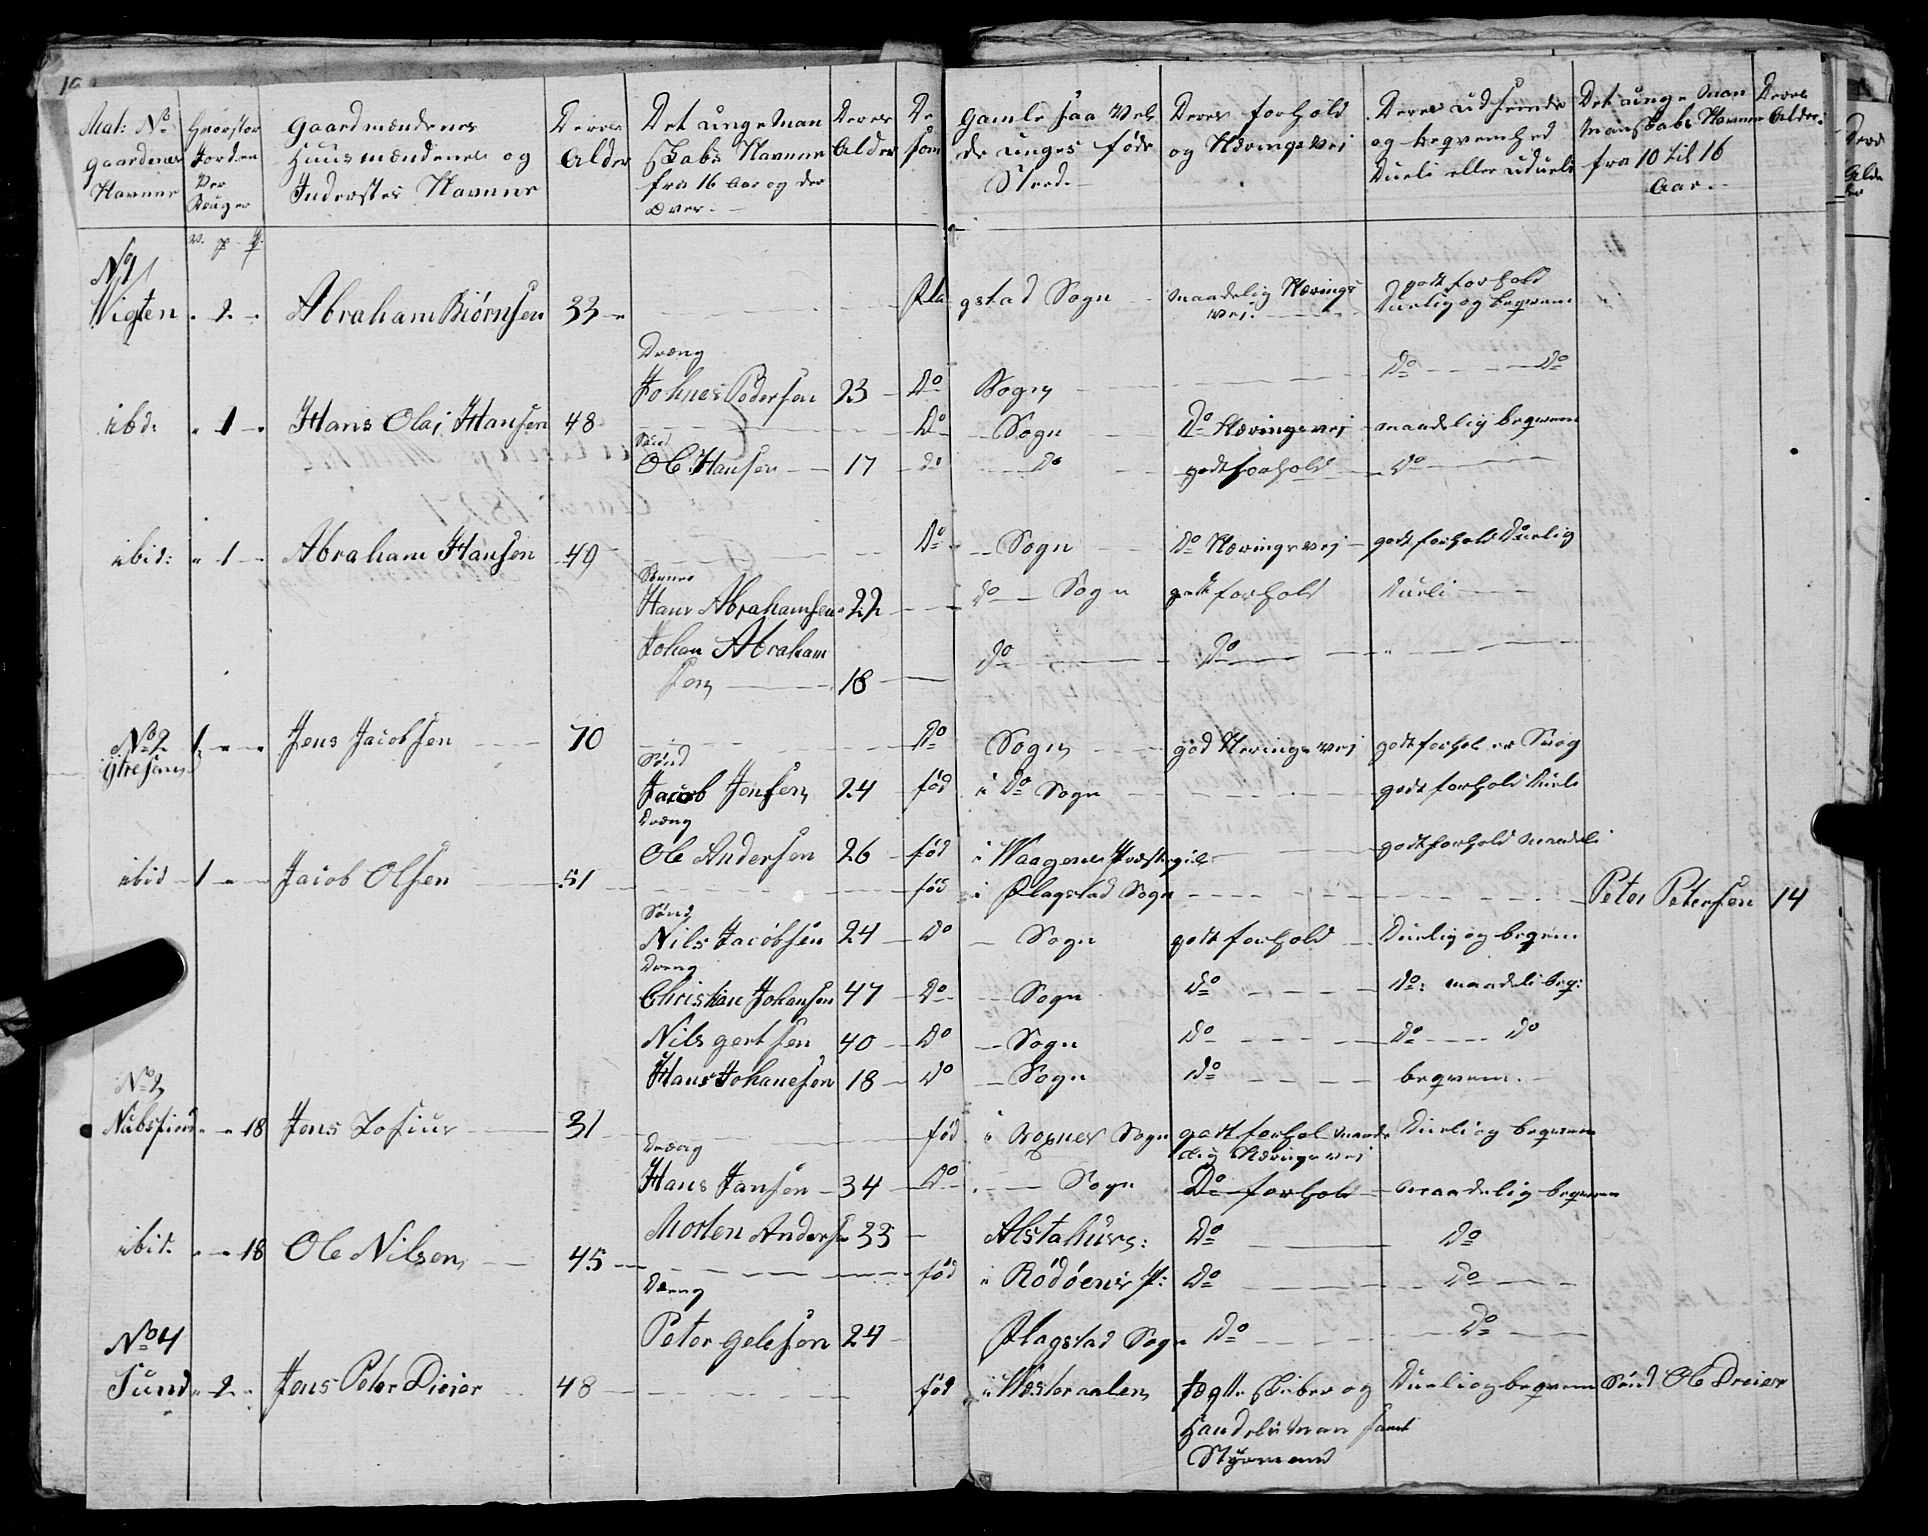 Mat: No Gaardenes Havnne
Hvorstor Jorden Der Bruger
Gaardmændenes Huusmændenes og Inderstes Navnne
Deres Alder
Det unge Mandskabs Navnne fra 16 Aar og der Over.
Deres Alder
De gamle saa vel som de unges føde Sted.
Deres forhold og Nærings Vej
Deres udseende og beqvemhed Dueli eller udueli
Det unge Man Manskabs Navnne fra 10 til 16 Aar.
Deres Alder.
v. p. #.
No 1
Vigten 2 Abraham Biørnsen 33 Flagstad Sogn maadelig Nærings vej. godt forhold Duelig og beqvem
Dræng
Johnes Pedersen 23 Do Sogn Do Do
ibd: 1 Hans Olai Hansen 48 Do Sogn Do Næringsvej maadelig beqvem
Sønd
Ole Hansen 17 do do godt forhold do
ibid: 1 Abraham Hansen 49 Do Sogn Do Næringsvej godt forhold Duelig
Sønner
Hans Abrahamsen 22 Do Sogn godt forhold Dueli
Johan Abraham
sen 18 Do Do
No 2 1 Jens Jacobsen 70 Do Sogn god Neringsvej godt forhol er Svag
Sønd
Jacob Jensen 24 fød i Do Sogn godt forhold Dueli
Dræng
Ole Andersen 26 fød i Waagens Præstegiel godt forhold maadeli
ibid 1 Jacob Olsen 51 fød i Flagstad Sogn Peter Petersen 14
Sønd
Nils Jacobsen 24 Do Sogn godt forhold Duelig og beqvem
Dreng
Christian Johansen 47 Do Sogn Do Do: maadeli beq:
Nils gertsen 40 Do Sogn Do Do Do
Hans Johanesen 18 Do Sogn Do beqvem.
Nubsfiord 18 Jens Losius 31 fød i Boxnes Sogn godt forhol maade Dueli og beqvem
lig Næringsvej
Dræng
Hans Jansen 34 Do Sogn Do forhold maadelig beqvem
Morten Anders 33 Alstahurg: Do Do
ibid. 18 Ole Nilsen 45 fød i Rödöens P: Do Do
Dreng
No 4 Peter gelesen 24 Flagstad Sogn Do Do
Sund 2 Jens Peter Dreier 48 fød i Westeraalen Jægte Skiber og Dueli og beqvem Sönd Ole Dreier
Handels Man samt
Styrmand